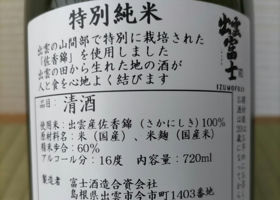 特別純米
出雲の山間部で特別に栽培された
「佐香錦」を使用しました
出雲の田から生れた地の酒が
人と食を心地よく結びます
品目：清酒
使用米：出雲産佐香錦（さかにしき）100%
原材料名：米（国産）、米麹（国産米）
精米歩合：60%
アルコール分：16度　内容量：720ml
製造者　富士酒造合資会社
島根県出雲市今市町1403番地
出雲富士
IZUMOFUJI